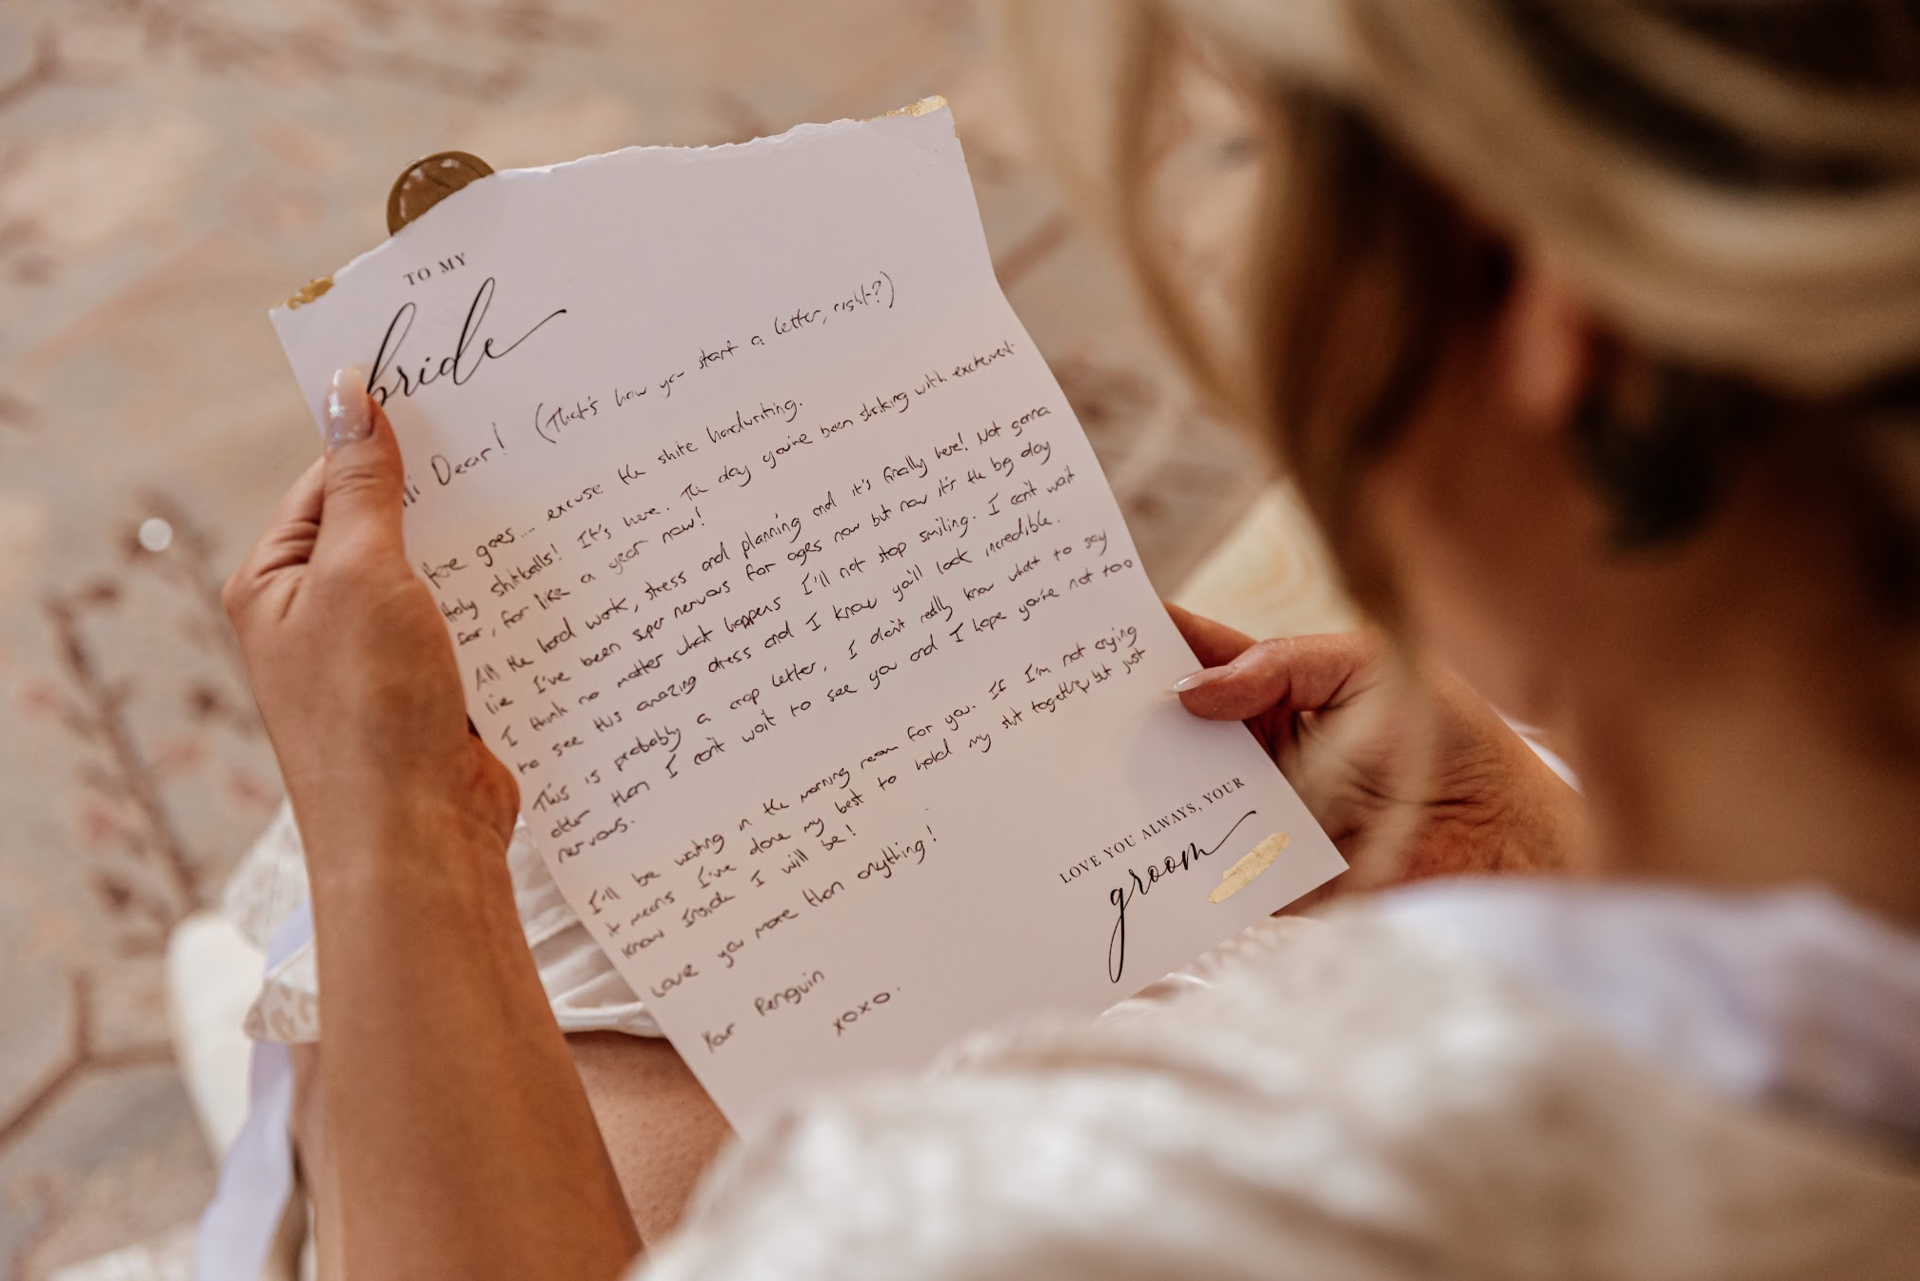 TO MY
bride
Hi Dear! (That's how you start a letter, right?)
Here goes... excuse the shite handwriting.
Holy shitballs! It's here. The day you've been shaking with excitement
for, for like a year now!
All the hard work, stress and planning and it's finally here! Not gonna
lie I've been super nervous for ages now but now it's the big day
I think no matter what happens I'll not stop smiling. I can't wait
to see this amazing dress and I know you'll look incredible.
This is probably a crap letter, I don't really know what to say
other than I can't wait to see you and I hope you're not too
nervous.
I'll be waiting in the morning room for you. If I'm not crying
it means I've done my best to hold my shit together but just
know inside I will be!
Love you more than anything!
Your Penguin
xoxo.
LOVE YOU ALWAYS, YOUR
groom